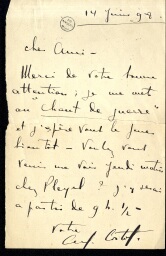 14 Juin 98
cher Ami -
Merci de votre bonne
attention ; je me met
au "chant de guerre"
et j'espère vous le
bientôt - Voulez vous
venir me voir jeudi matin
chez Pleyel ? j'y serai
à partir de 9 h. 1/2 -
Votre